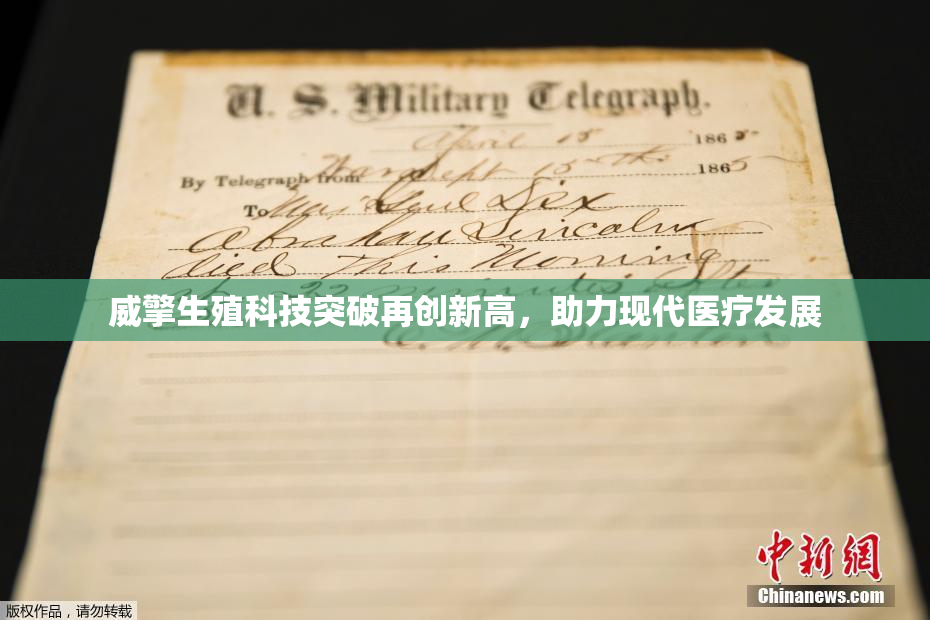 U. S. Military Telegraph.
April 15 1865
By Telegraph from War Dept 15th 1865
To Maj Genl Dix
Abraham Lincoln
died This Morning
22 minutes after
威擎生殖科技突破再创新高，助力现代医疗发展
E. M. Stanton
中新网
Chinanews.com
版权作品，请勿转载